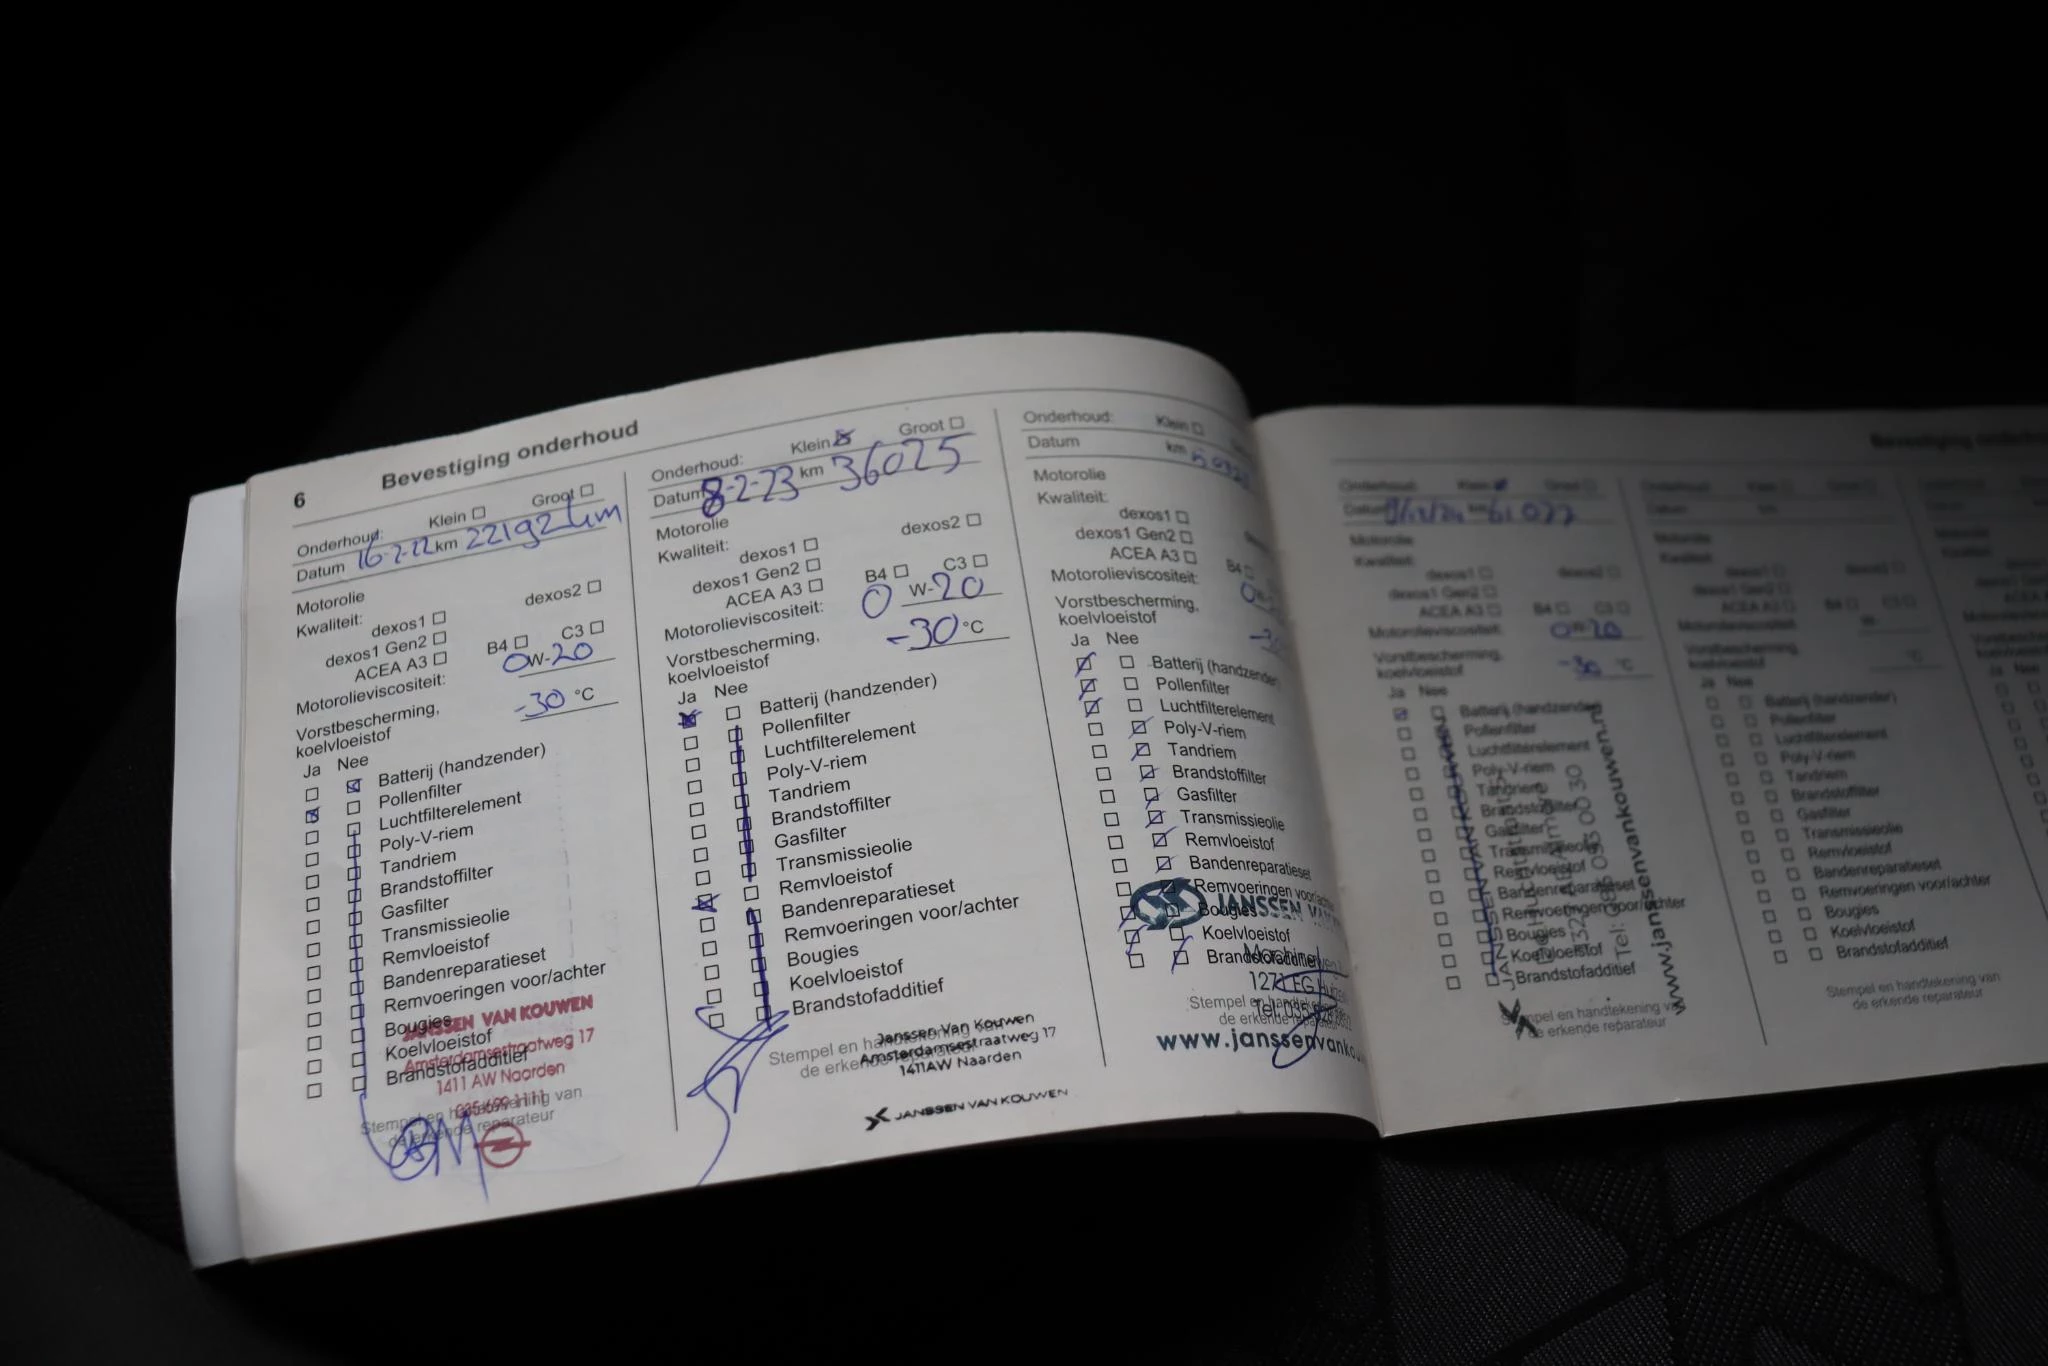 6
Bevestiging onderhoud
Onderhoud: Klein Groot
Datum 16-2-22 km 22192 km
Motorolie
Kwaliteit: dexos1 dexos2
dexos1 Gen2
ACEA A3 B4 C3
Motorolieviscositeit: 0W-20
Vorstbescherming, koelvloeistof -30 °C
Ja Nee
Batterij (handzender)
Pollenfilter
Luchtfilterelement
Poly-V-riem
Tandriem
Brandstoffilter
Gasfilter
Transmissieolie
Remvloeistof
Bandenreparatieset
Remvoeringen voor/achter
Bougies
Koelvloeistof
Brandstofadditief
JANSSEN VAN KOUWEN
Amsterdamsestraatweg 17
1411 AW Naarden
Stempel en handtekening van
de erkende reparateur
Onderhoud: Klein Groot
Datum 8-2-23 km 36025
Motorolie
Kwaliteit: dexos1 dexos2
dexos1 Gen2
ACEA A3 B4 C3
Motorolieviscositeit: 0 W-20
Vorstbescherming,
koelvloeistof -30 °C
Ja Nee
Batterij (handzender)
Pollenfilter
Luchtfilterelement
Poly-V-riem
Tandriem
Brandstoffilter
Gasfilter
Transmissieolie
Remvloeistof
Bandenreparatieset
Remvoeringen voor/achter
Bougies
Koelvloeistof
Brandstofadditief
Stempel en handtekening van
de erkende reparateur
Janssen Van Kouwen
Amsterdamsestraatweg 17
1411AW Naarden
JANSSEN VAN KOUWEN
Onderhoud: Klein
Datum km
Motorolie
Kwaliteit:
dexos1
dexos1 Gen2
ACEA A3 B4
Motorolieviscositeit:
Vorstbescherming,
koelvloeistof
Ja Nee
Batterij (handzender)
Pollenfilter
Luchtfilterelement
Poly-V-riem
Tandriem
Brandstoffilter
Gasfilter
Transmissieolie
Remvloeistof
Bandenreparatieset
Remvoeringen voor/achter
Bougies
Koelvloeistof
Brandstofadditief
JANSSEN VAN
1271 EG Huizen
Stempel en
www.janssenvankou
Onderhoud: Klein Groot
Datum km 61077
Motorolie
Kwaliteit:
dexos1 dexos2
dexos1 Gen2
ACEA A3 B4 C3
Motorolieviscositeit: 0W-20
Vorstbescherming,
koelvloeistof -30 °C
Ja Nee
Batterij (handzender)
Pollenfilter
Luchtfilterelement
Poly-V-riem
Tandriem
Brandstoffilter
Gasfilter
Transmissieolie
Remvloeistof
Bandenreparatieset
Remvoeringen voor/achter
Bougies
Koelvloeistof
Brandstofadditief
JANSSEN VAN KOUWEN
www.janssenvankouwen.nl
Stempel en handtekening van
de erkende reparateur
Onderhoud: Klein Groot
Datum km
Motorolie
Kwaliteit:
dexos1 dexos2
dexos1 Gen2
ACEA A3 B4 C3
Motorolieviscositeit: W-
Vorstbescherming,
koelvloeistof °C
Ja Nee
Batterij (handzender)
Pollenfilter
Luchtfilterelement
Poly-V-riem
Tandriem
Brandstoffilter
Gasfilter
Transmissieolie
Remvloeistof
Bandenreparatieset
Remvoeringen voor/achter
Bougies
Koelvloeistof
Brandstofadditief
Stempel en handtekening van
de erkende reparateur